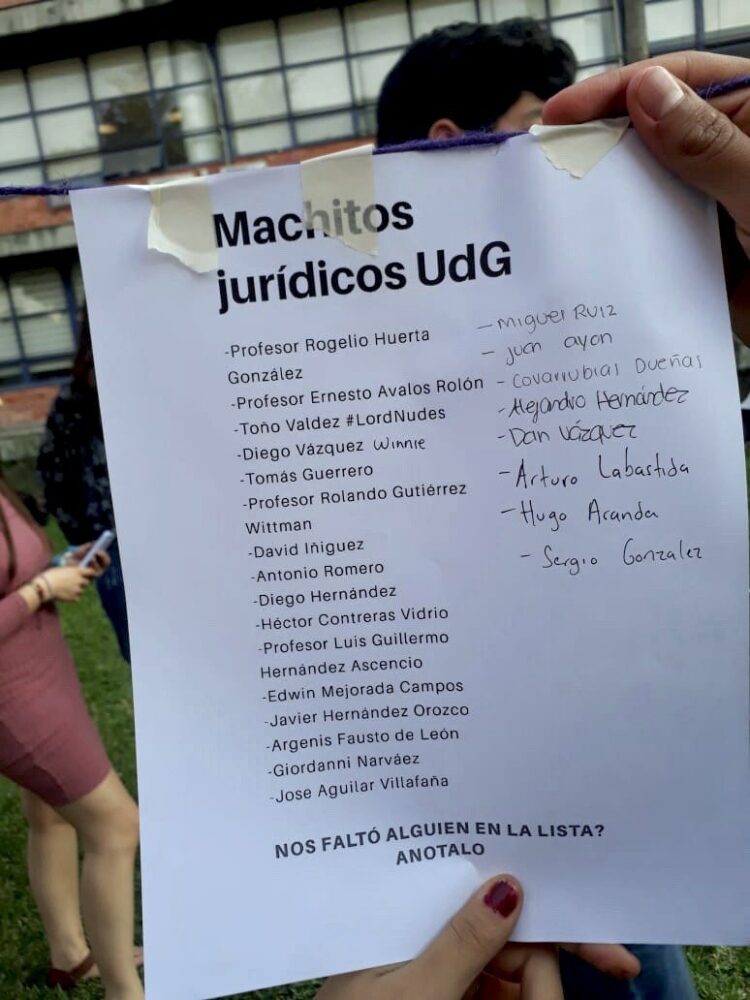 Machitos
jurídicos UdG
-Profesor Rogelio Huerta
González
-Profesor Ernesto Avalos Rolón
-Toño Valdez #LordNudes
-Diego Vázquez Winnie
-Tomás Guerrero
-Profesor Rolando Gutiérrez
Wittman
-David Iñiguez
-Antonio Romero
-Diego Hernández
-Héctor Contreras Vidrio
-Profesor Luis Guillermo
Hernández Ascencio
-Edwin Mejorada Campos
-Javier Hernández Orozco
-Argenis Fausto de León
-Giordanni Narváez
-Jose Aguilar Villafaña
- Miguel Ruiz
- juan ayon
- Covarrubias Dueñas
- Alejandro Hernández
- Dan Vázquez
- Arturo Labastida
- Hugo Aranda
- Sergio Gonzalez
NOS FALTÓ ALGUIEN EN LA LISTA?
ANOTALO